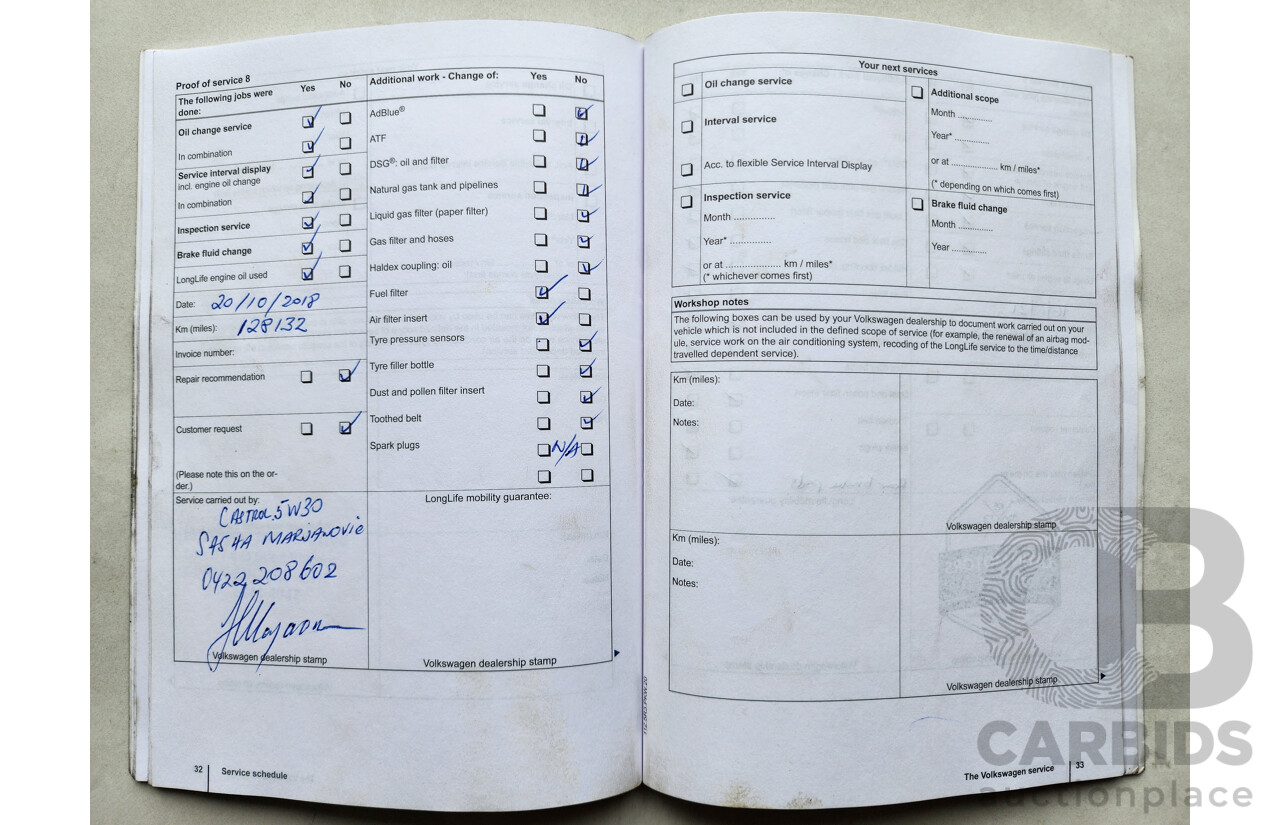 Proof of service 8
The following jobs were done: Yes No
Oil change service
In combination
Service interval display
incl. engine oil change
In combination
Inspection service
Brake fluid change
LongLife engine oil used
Date: 20/10/2018
Km (miles): 128132
Invoice number:
Repair recommendation
Customer request
(Please note this on the or-
der.)
Service carried out by:
CASTROL 5W30
SASHA MARJANOVIC
0422 208602
Volkswagen dealership stamp
Additional work - Change of: Yes No
AdBlue®
ATF
DSG®: oil and filter
Natural gas tank and pipelines
Liquid gas filter (paper filter)
Gas filter and hoses
Haldex coupling: oil
Fuel filter
Air filter insert
Tyre pressure sensors
Tyre filler bottle
Dust and pollen filter insert
Toothed belt
Spark plugs N/A
LongLife mobility guarantee:
Volkswagen dealership stamp
32 Service schedule
Your next services
Oil change service
Interval service
Acc. to flexible Service Interval Display
Inspection service
Month ...............
Year* ...............
or at .................... km / miles*
(* whichever comes first)
Additional scope
Month ............
Year* ............
or at ................. km / miles*
(* depending on which comes first)
Brake fluid change
Month ............
Year ............
Workshop notes
The following boxes can be used by your Volkswagen dealership to document work carried out on your
vehicle which is not included in the defined scope of service (for example, the renewal of an airbag mod-
ule, service work on the air conditioning system, recoding of the LongLife service to the time/distance
travelled dependent service).
Km (miles):
Date:
Notes:
Volkswagen dealership stamp
Km (miles):
Date:
Notes:
Volkswagen dealership stamp
The Volkswagen service 33
CARBIDS
auctionplace